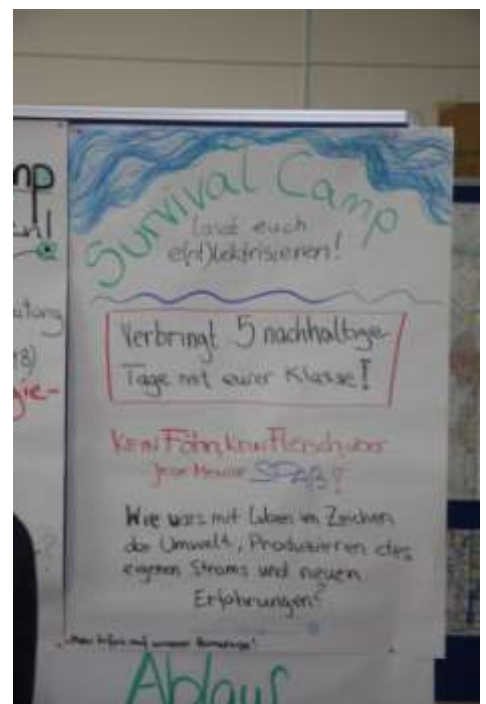 Survival Camp
Lasst euch
e(nt)lektrisieren!
Verbringt 5 nachhaltige
Tage mit eurer Klasse!
Kein Föhn, kein Fleisch, aber
jede Menge SPAß?
Wie wärs mit Leben im Zeichen
der Umwelt, Produzieren des
eigenen Stroms und neuen
Erfahrungen?
Mehr Infos auf unserer Homepage!
Ablauf